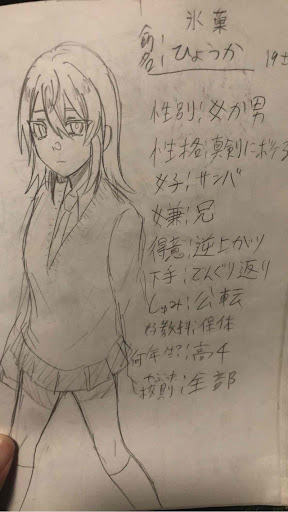 氷菓
命名:ひょうか
19才
性別:女か男
性格:真剣にボケる
女子:サンバ
嫌:兄
得意:逆上がり
下手:でんぐり返り
しゅみ:公転
好教科:保体
何年生?:高4
校則:全部